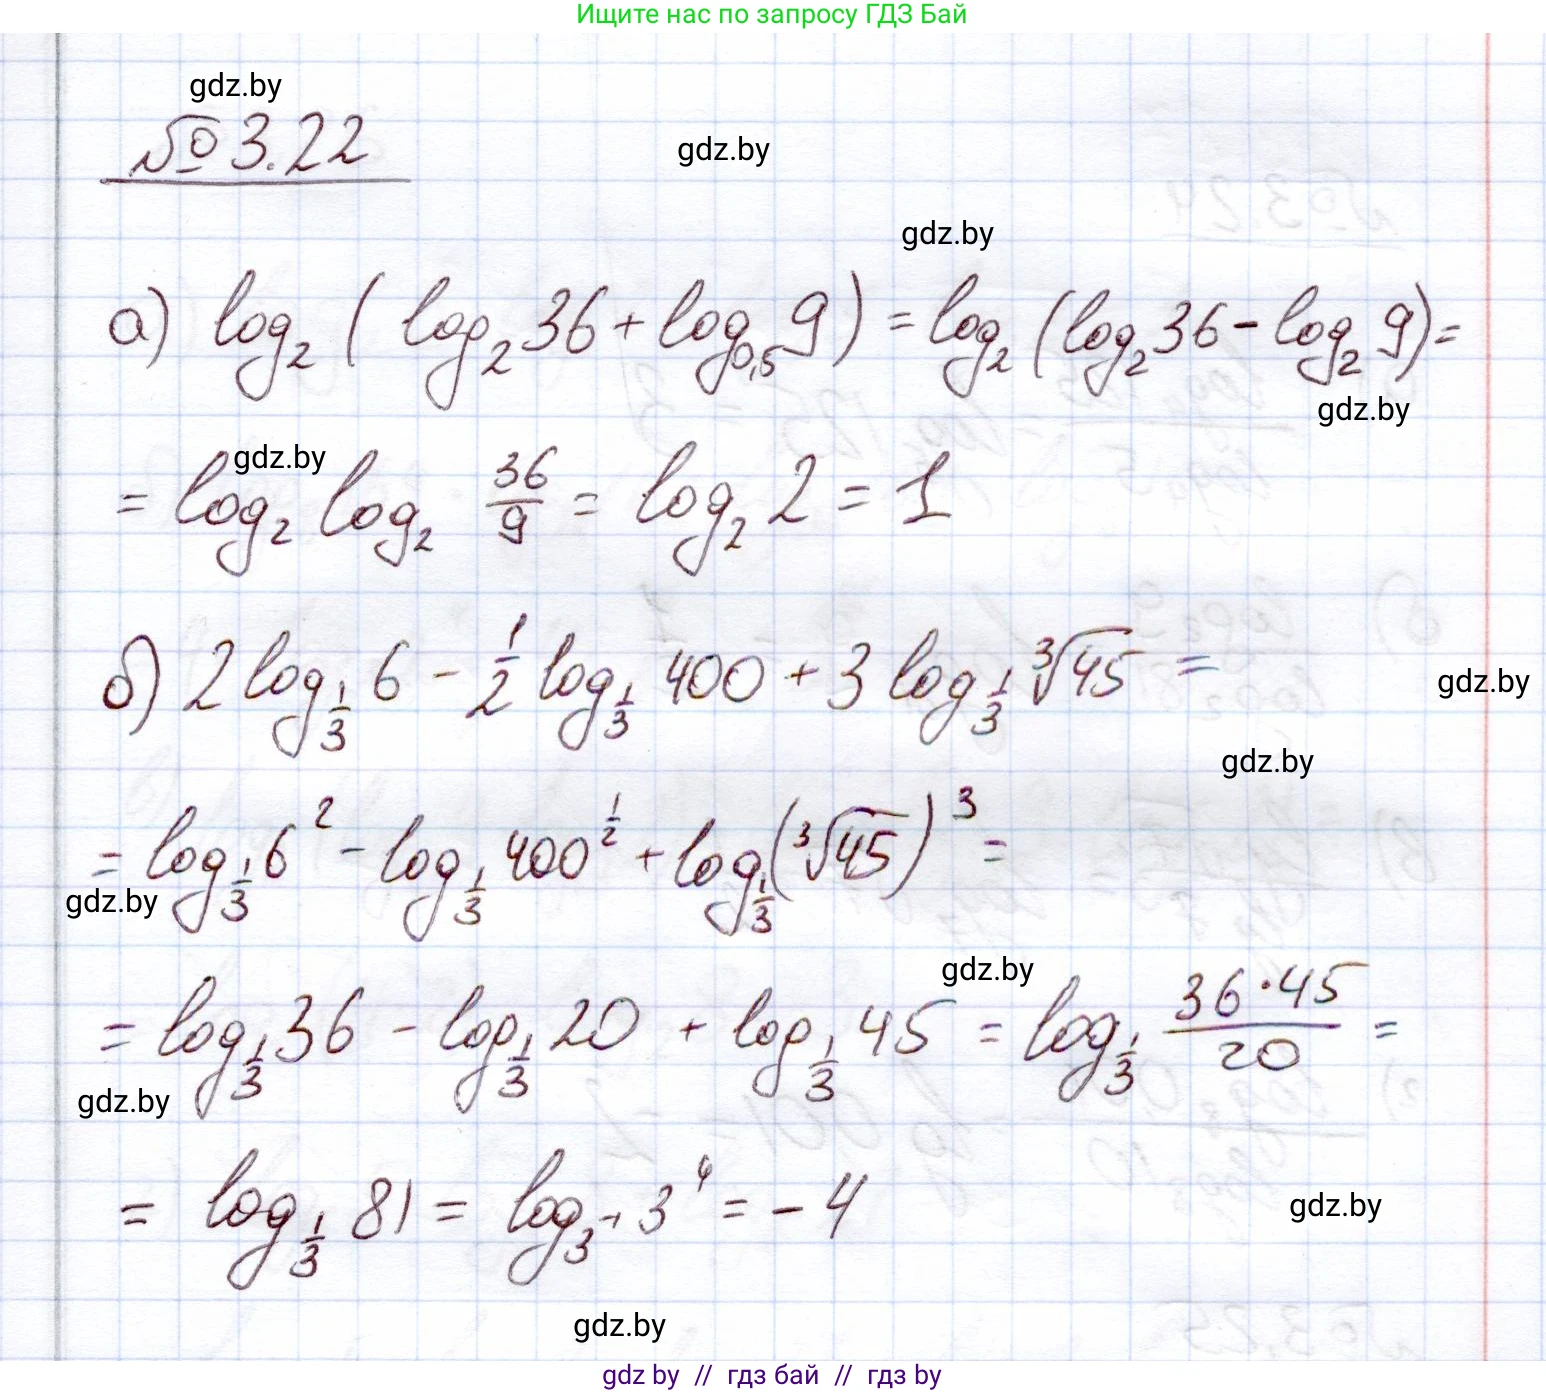 Ищите нас по запросу ГДЗ Бай
gdz.by
№ 3.22
gdz.by
gdz.by
а) log₂ ( log₂ 36 + log₀,₅ 9 ) = log₂ (log₂ 36 - log₂ 9) =
gdz.by
gdz.by
= log₂ log₂ 36/9 = log₂ 2 = 1
б) 2 log_{1/3} 6 - 1/2 log_{1/3} 400 + 3 log_{1/3} ∛45 =
gdz.by
gdz.by
= log_{1/3} 6² - log_{1/3} 400^{1/2} + log_{1/3} (∛45)³ =
gdz.by
gdz.by
= log_{1/3} 36 - log_{1/3} 20 + log_{1/3} 45 = log_{1/3} (36·45)/20 =
gdz.by
= log_{1/3} 81 = log_{3^{-1}} 3⁴ = -4
gdz.by
gdz.by
gdz by // гдз бай // гдз by